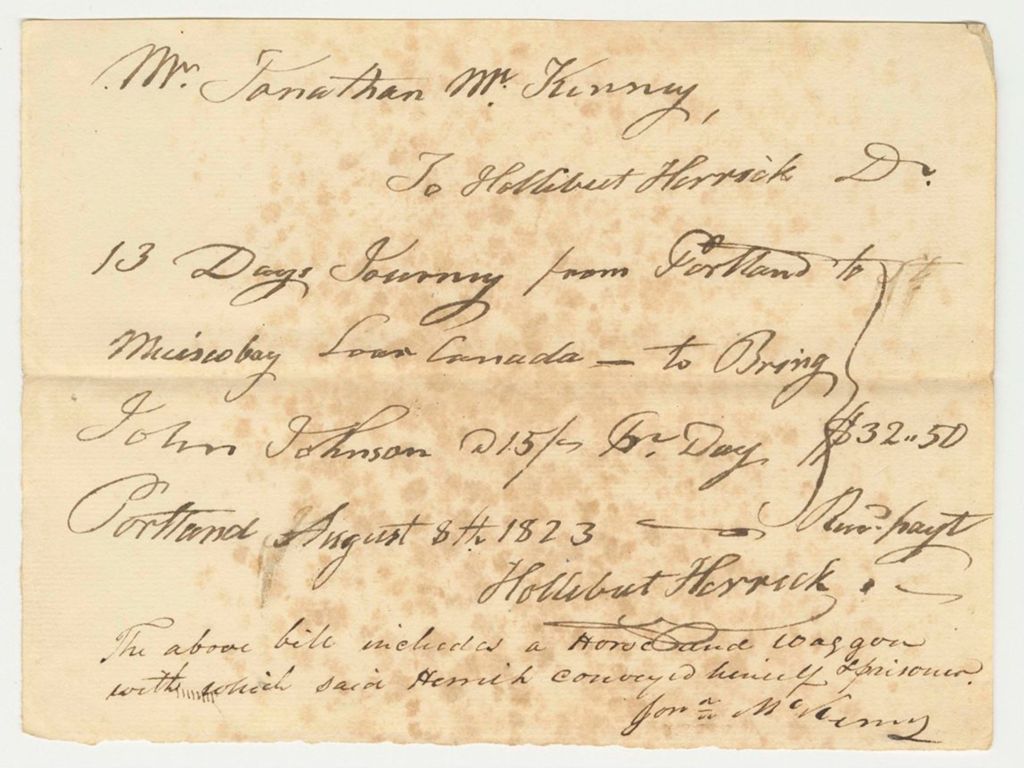 Mr. Jonathan Mc. Kinney,
To Hollibut Herrick Dr.
13 Days Journey from Portland to
Muiscobay Loar Canada — to Bring
John Johnson @ 15/- Pr. Day $32..50
Portland August 8th 1823 — Recd. payt
Hollibut Herrick
The above bill includes a Horse and waggon
with which said Herrick conveyed himself & prisoner.
Jona McKinney